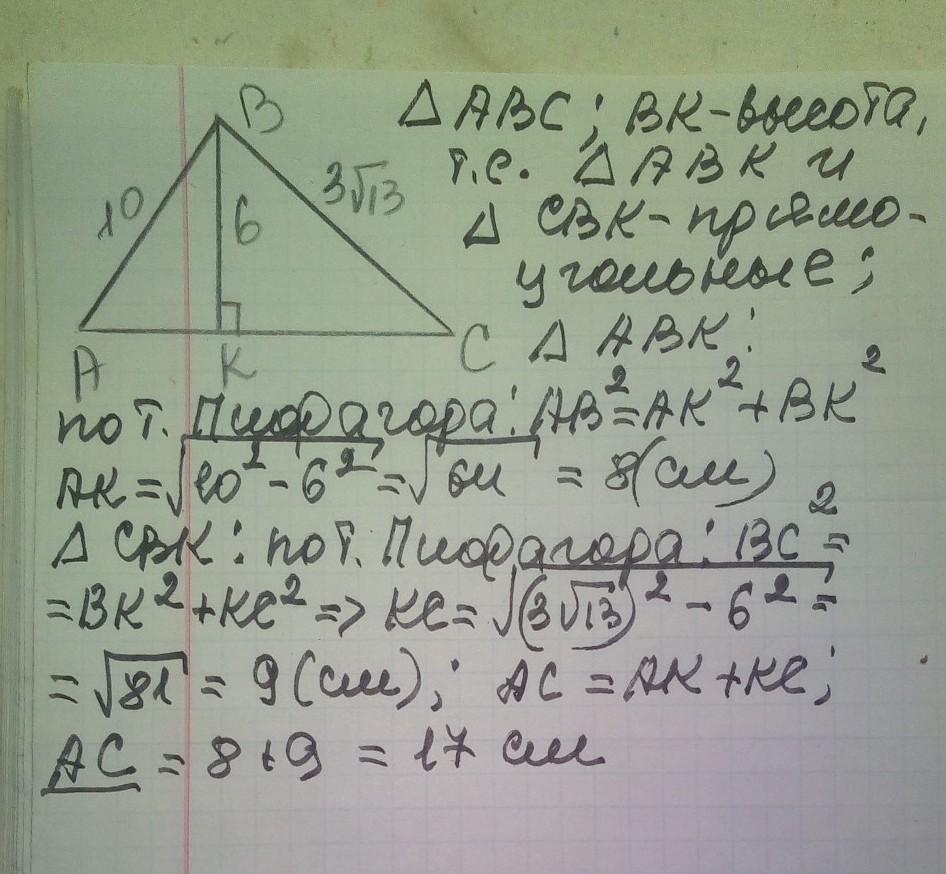 B
10
6
3√13
A
K
C
Δ ABC; BK-высота,
т.е. Δ ABK и
Δ CBK-прямо-
угольные;
Δ ABK:
по т. Пифагора: AB²=AK²+BK²
AK=√10²-6²=√64 = 8(см)
Δ CBK: по т. Пифагора: BC²=
=BK²+KC²=> KC=√(3√13)²-6²=
=√81 = 9(см); AC=AK+KC;
AC = 8+9 = 17 см